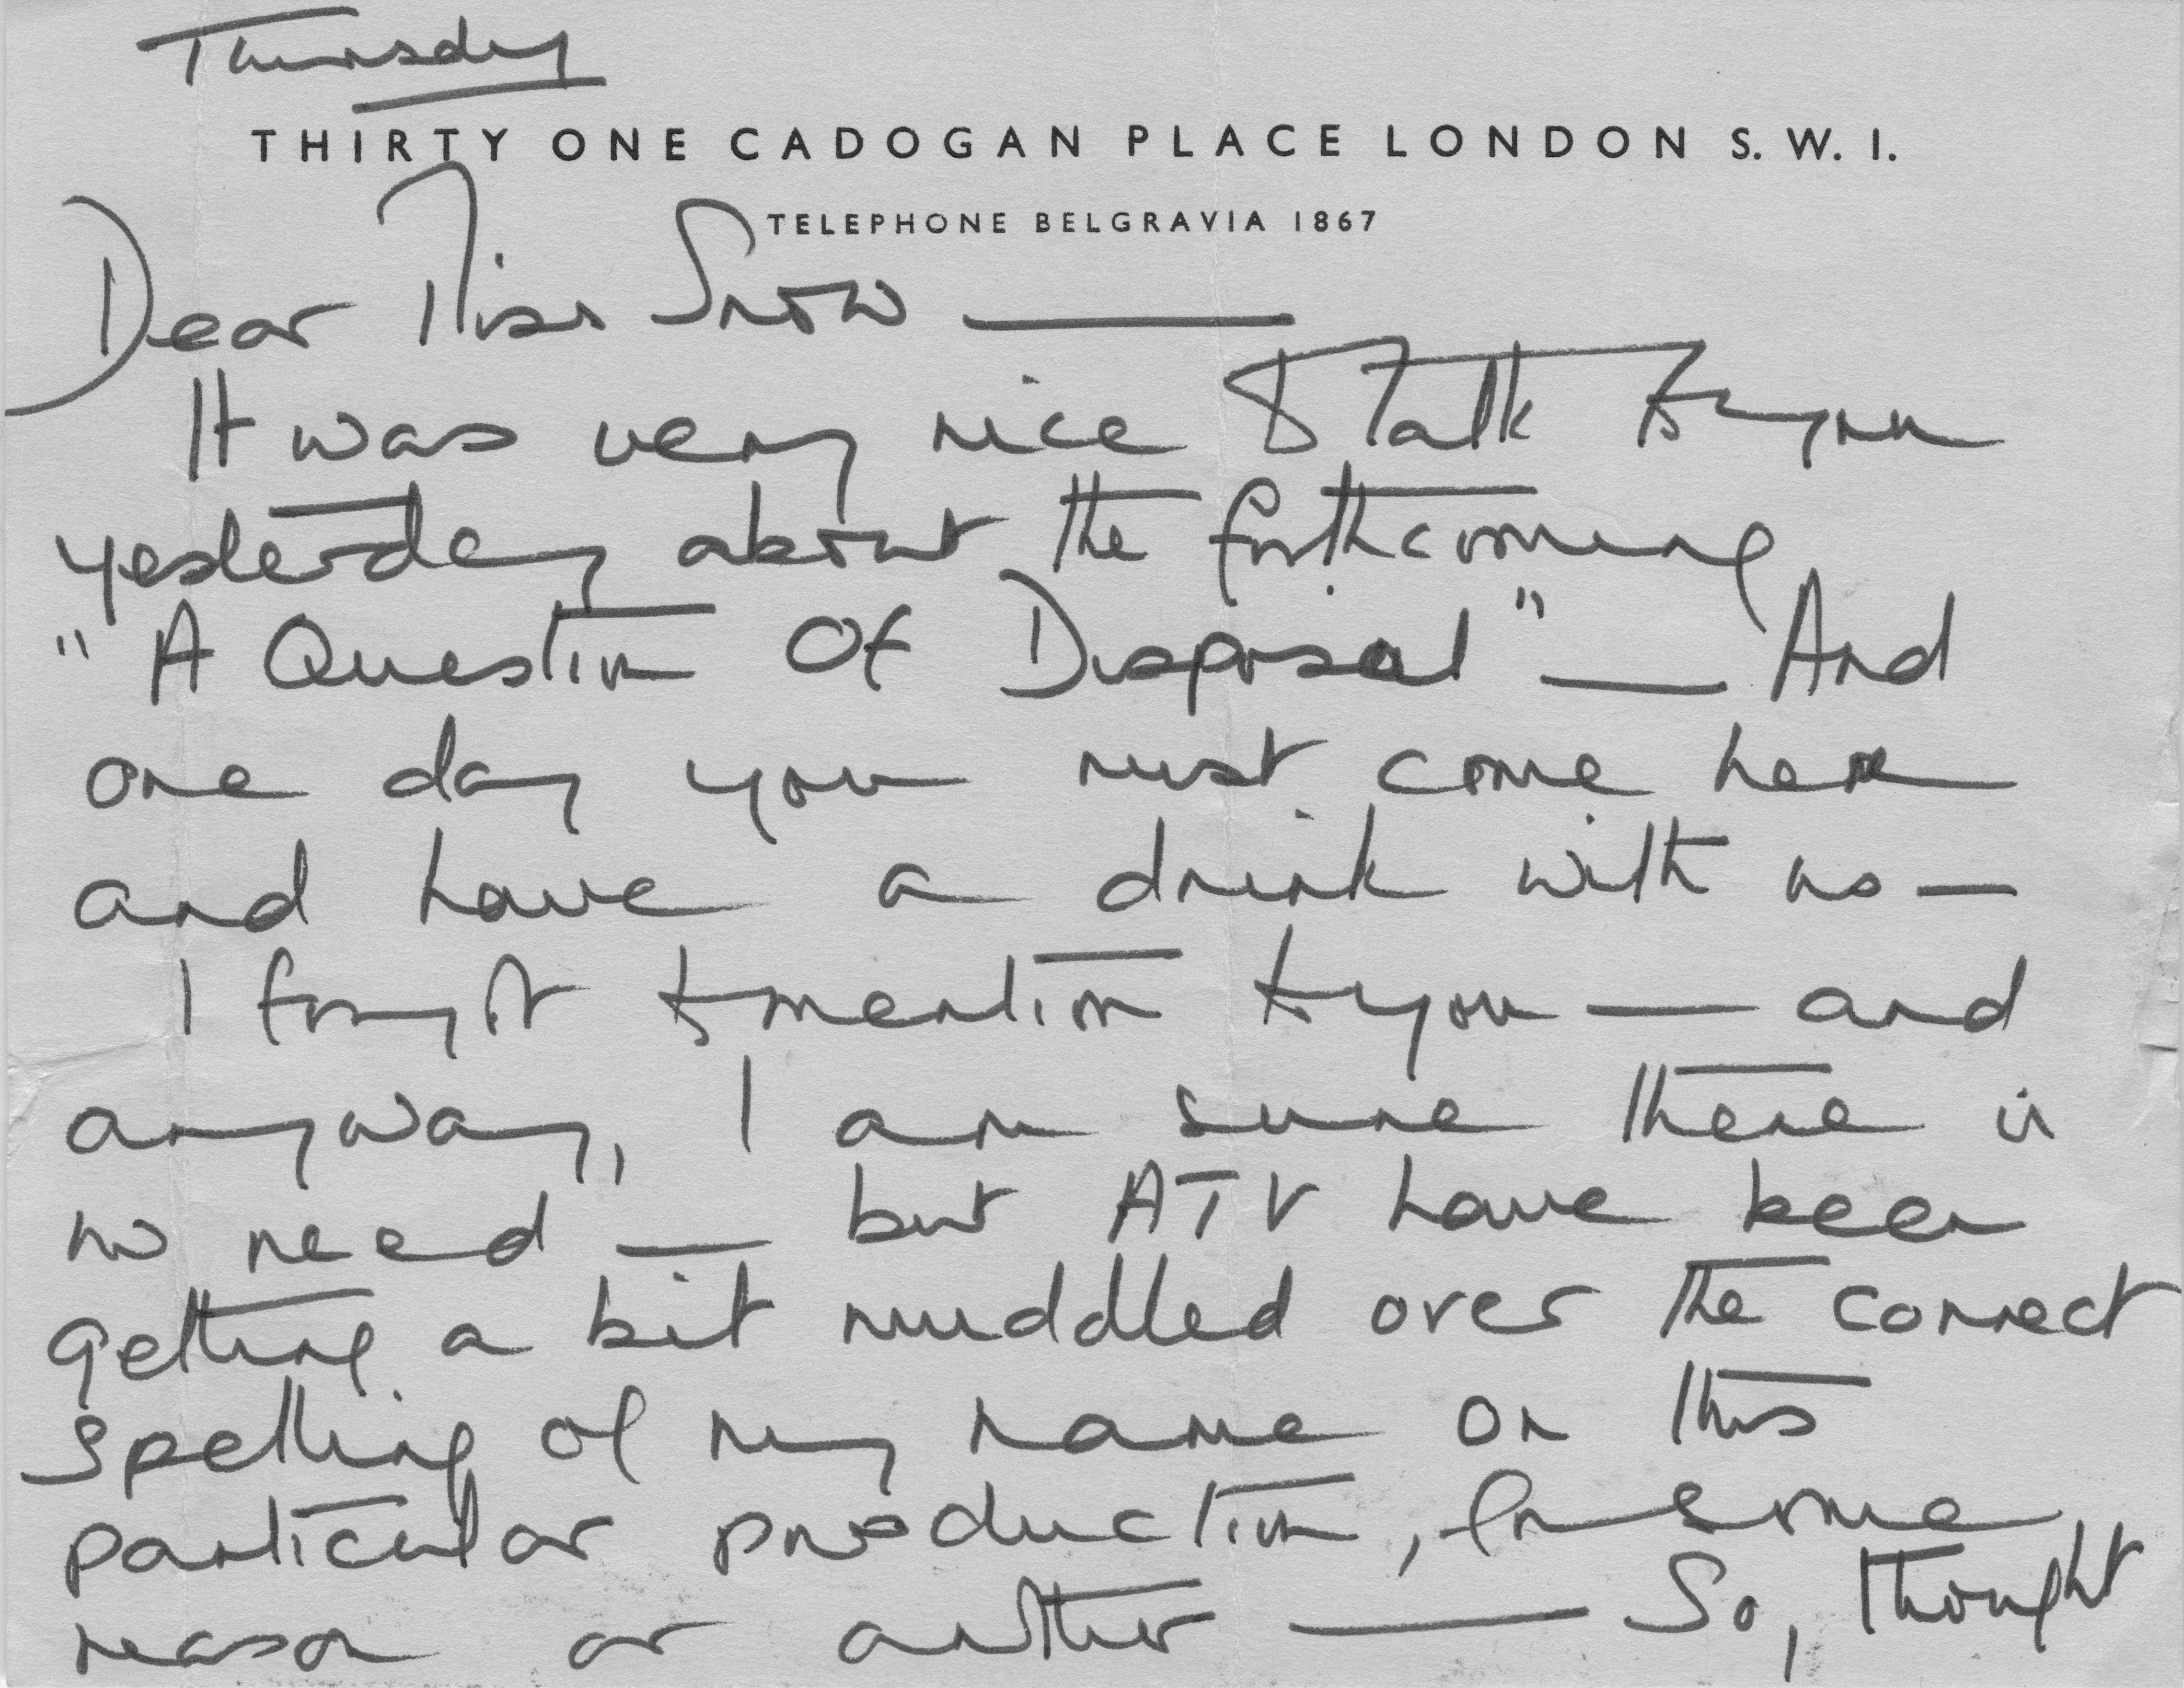 Thursday
THIRTY ONE CADOGAN PLACE LONDON S. W. 1.
TELEPHONE BELGRAVIA 1867
Dear Miss Snow —
It was very nice to talk to you
yesterday about the forthcoming
"A Question Of Disposal" — And
one day you must come here
and have a drink with us —
I forgot to mention to you — and
anyway, I am sure there is
no need — but ATV have been
getting a bit muddled over the correct
spelling of my name on this
particular production, for some
reason or another — So, thought